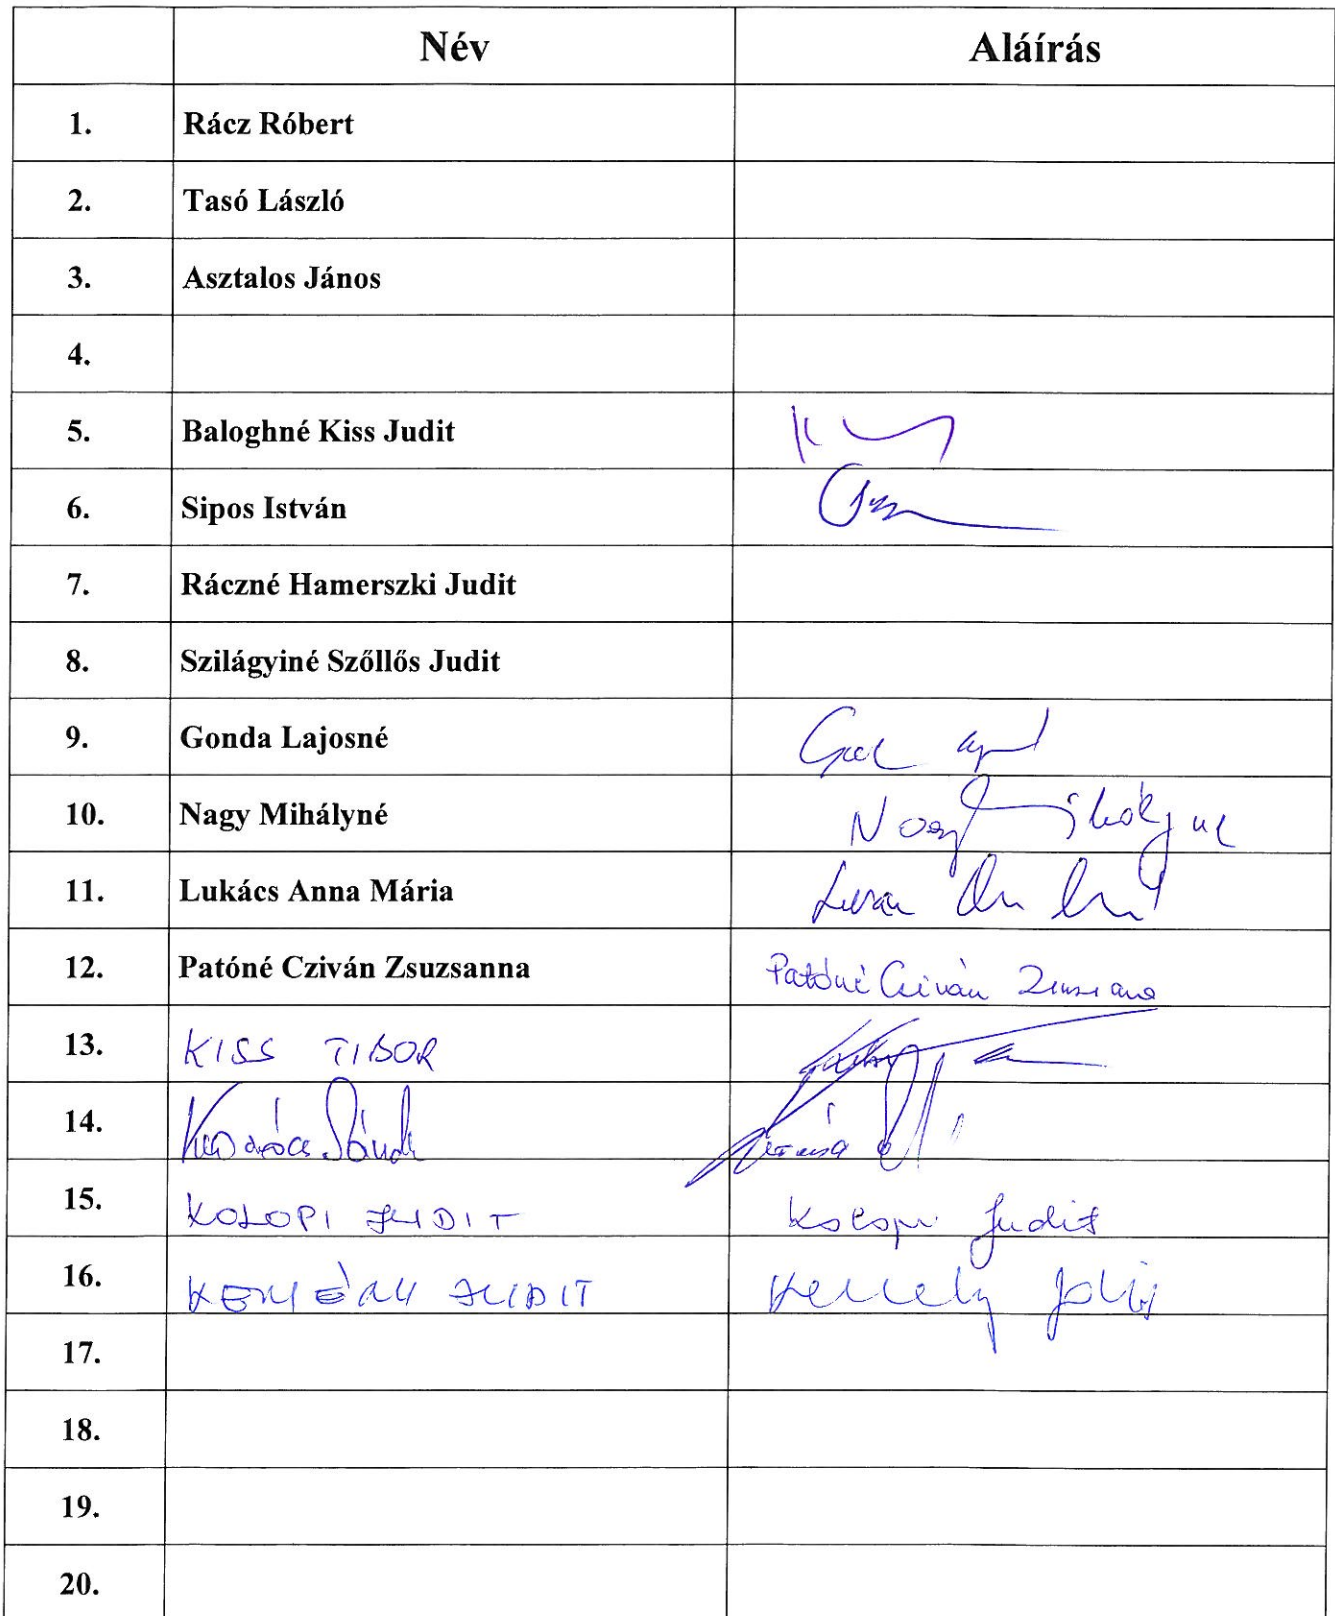 Név Aláírás
1. Rácz Róbert
2. Tasó László
3. Asztalos János
4.
5. Baloghné Kiss Judit
6. Sipos István
7. Ráczné Hamerszki Judit
8. Szilágyiné Szőllős Judit
9. Gonda Lajosné
10. Nagy Mihályné Nagy Mihályné
11. Lukács Anna Mária
12. Patóné Cziván Zsuzsanna Patóné Cziván Zsuzsanna
13. KISS TIBOR
14. Kovács
15. KOLOPI JUDIT Kolopi Judit
16. JUDIT
17.
18.
19.
20.